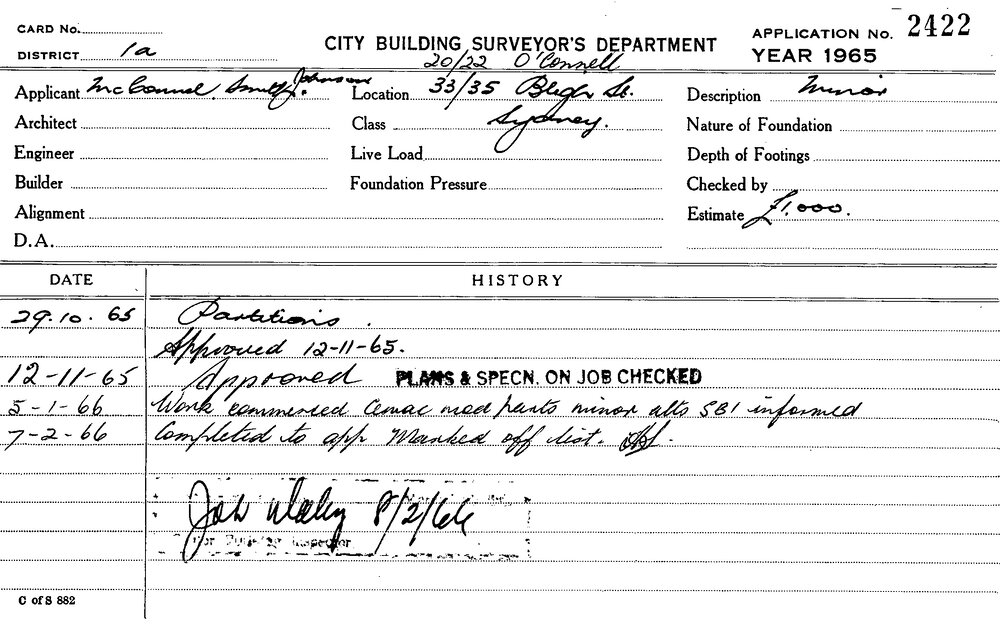 CARD No.
CITY BUILDING SURVEYOR'S DEPARTMENT
APPLICATION No. 2422
DISTRICT 1a
YEAR 1965
20/22 O'Connell
Applicant McConnel, Smith & Johnson
Location 33/35 Bligh St.
Sydney.
Description Minor
Architect
Class
Nature of Foundation
Engineer
Live Load
Depth of Footings
Builder
Foundation Pressure
Checked by
Alignment
Estimate £1,000.
D.A.
DATE HISTORY
29.10.65 Partitions.
Approved 12-11-65.
12-11-65 Approved PLANS & SPECN. ON JOB CHECKED
5-1-66 Work commenced Cemac mod parts minor alts SBI informed
7-2-66 Completed to app Marked off list.
8/2/66
Inspector
C of S 882